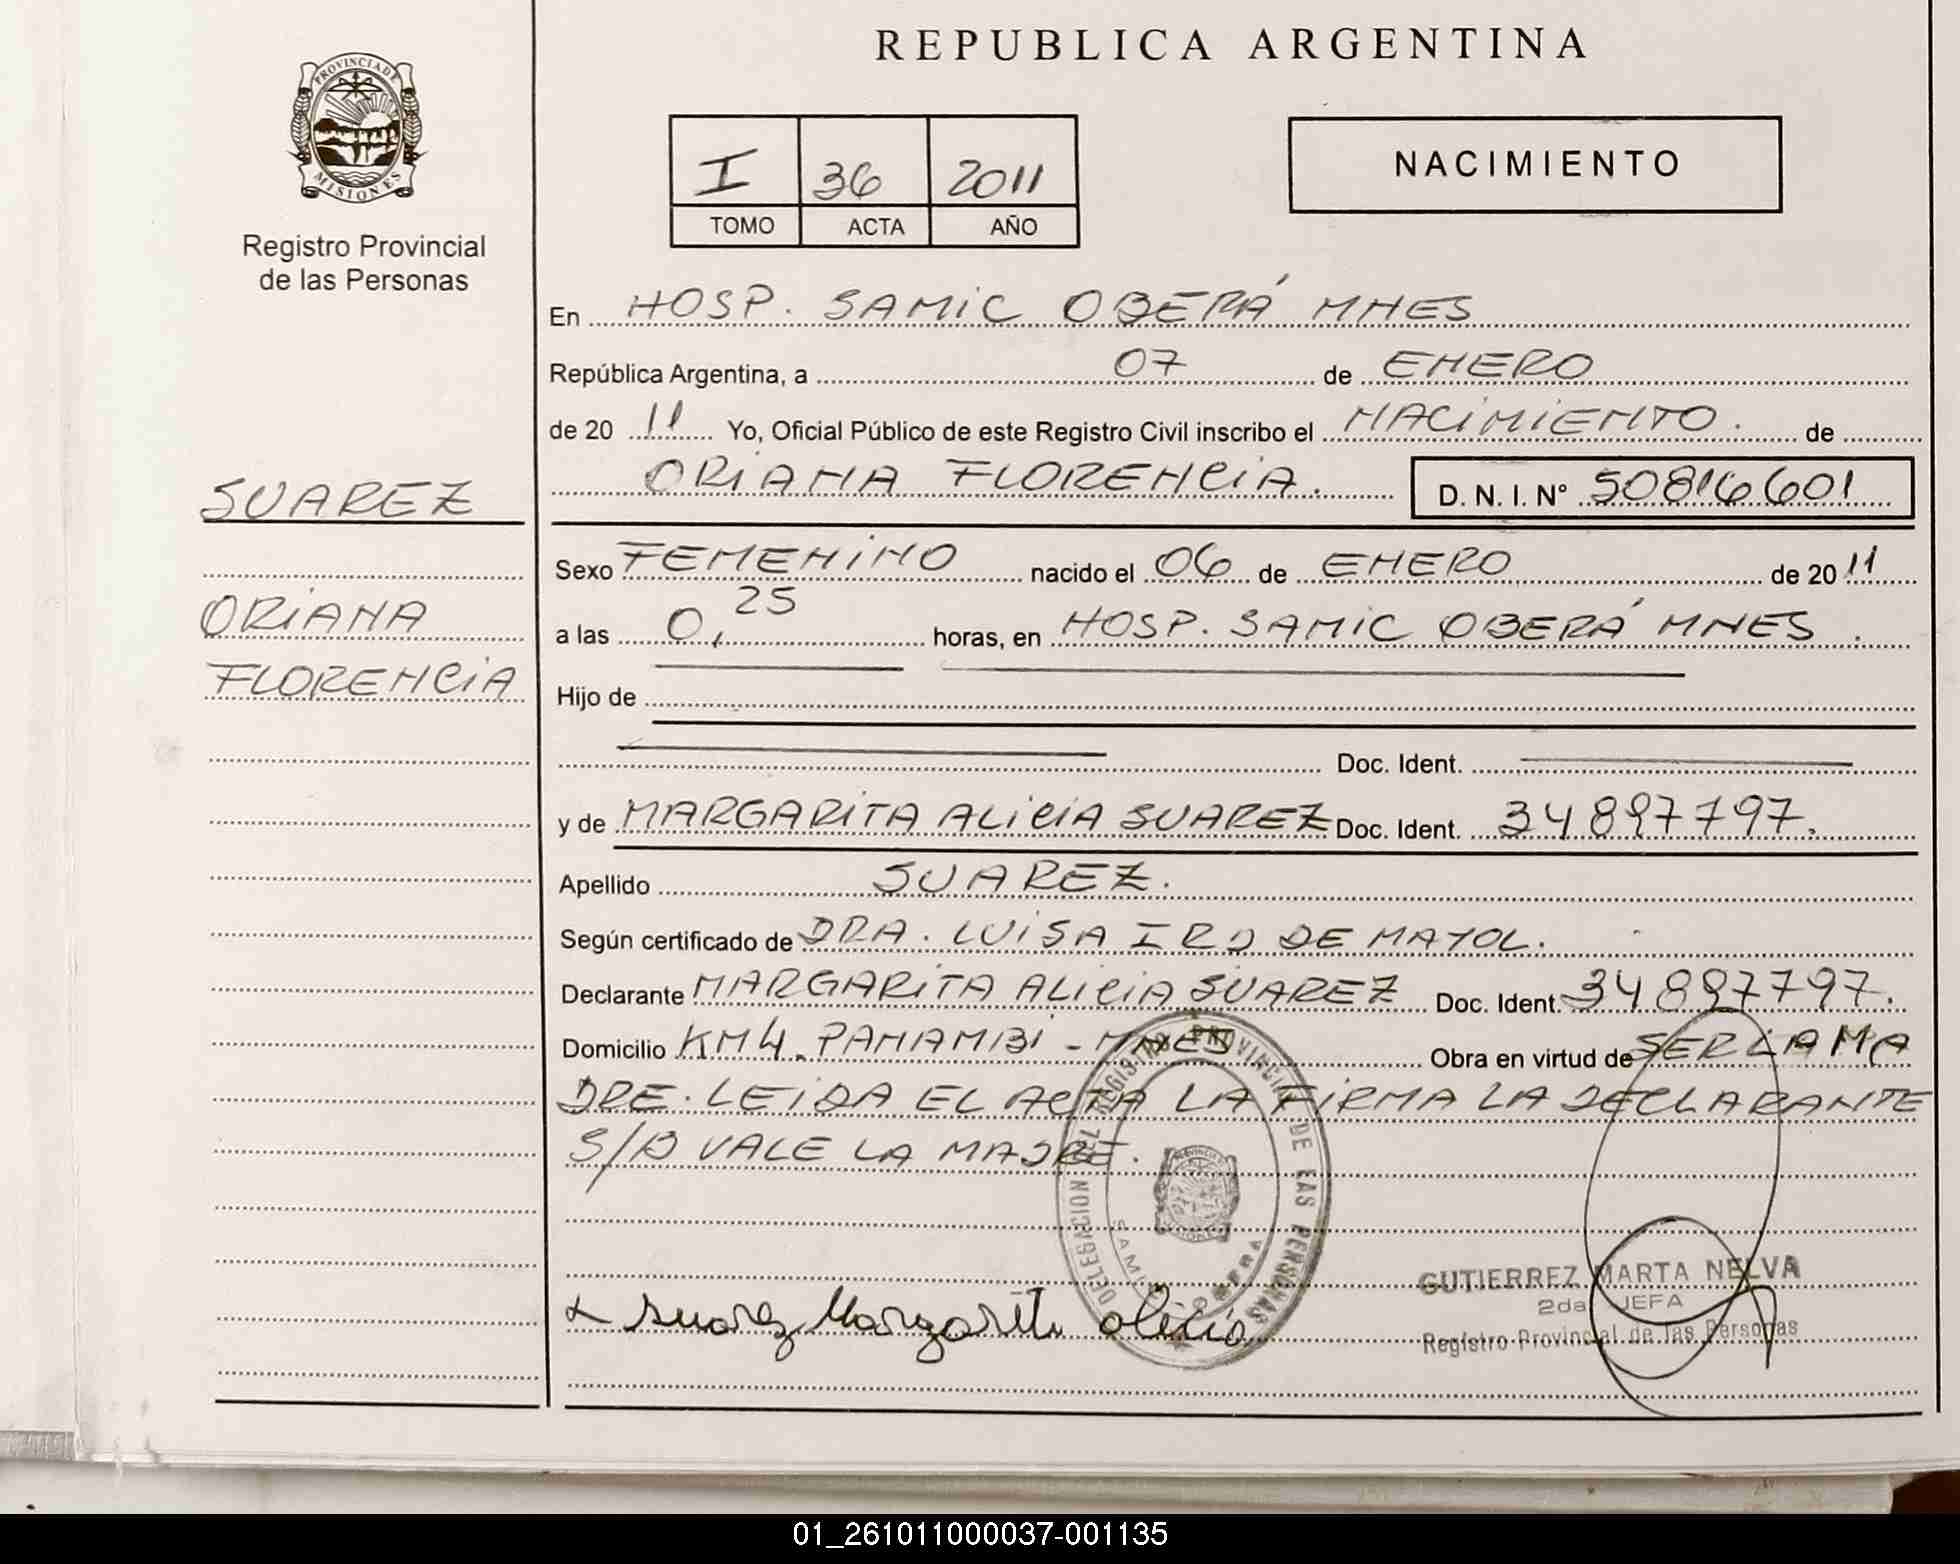 REPUBLICA ARGENTINA
PROVINCIA DE MISIONES
Registro Provincial
de las Personas
I 36 2011
TOMO ACTA AÑO
NACIMIENTO
En HOSP. SAMIC OBERÁ MNES
República Argentina, a 07 de ENERO
de 20 11 Yo, Oficial Público de este Registro Civil inscribo el NACIMIENTO. de
ORIANA FLORENCIA. D. N. I. Nº 50816601
SUAREZ
ORIANA
FLORENCIA
Sexo FEMENINO nacido el 06 de ENERO de 20 11
a las 0,25 horas, en HOSP. SAMIC OBERÁ MNES.
Hijo de
Doc. Ident.
y de MARGARITA ALICIA SUAREZ Doc. Ident. 34897797.
Apellido SUAREZ.
Según certificado de DRA. LUISA DE MAYOL.
Declarante MARGARITA ALICIA SUAREZ Doc. Ident. 34897797.
Domicilio KM4. PANAMBI - MNES Obra en virtud de SER LA MA
DRE. LEIDA EL ACTA LA FIRMA LA DECLARANTE
S/B VALE LA MADRE.
DELEGACION DEL REGISTRO PROVINCIAL DE LAS PERSONAS
GUTIERREZ MARTA NELVA
2da JEFA
Registro Provincial de las Personas
Suarez Margarita Alicia
01_261011000037-001135